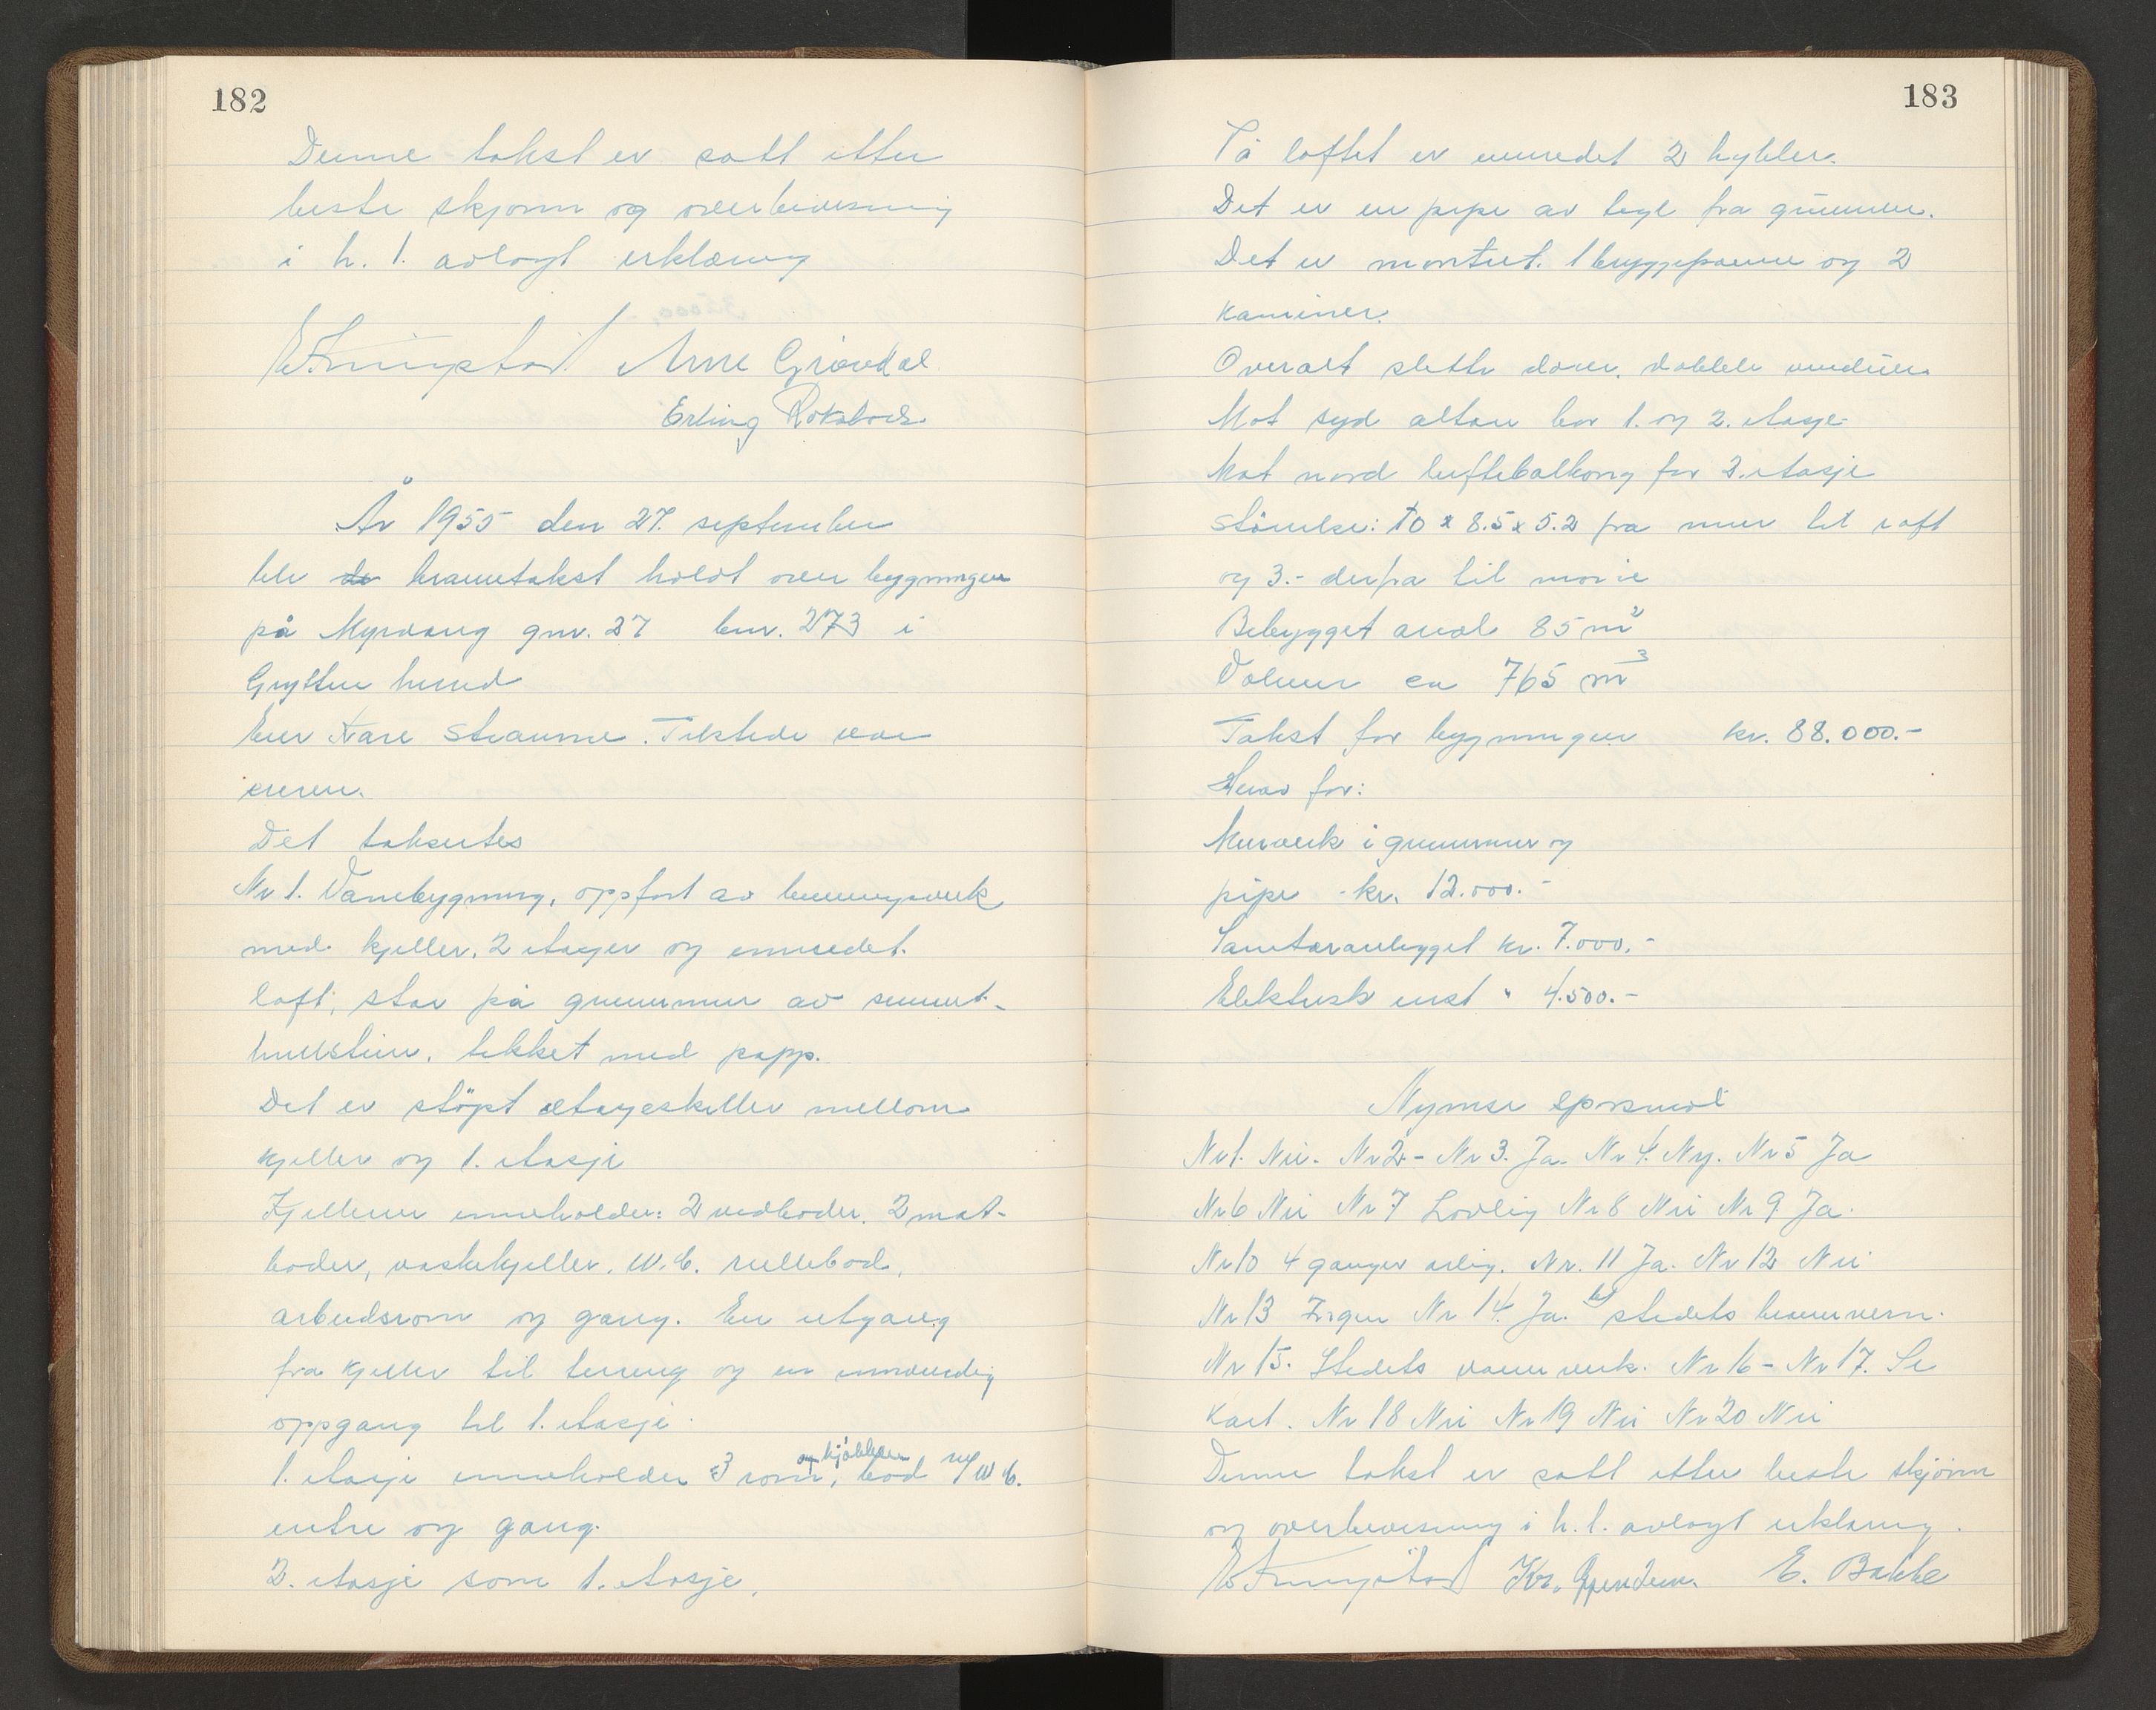 182
Denne takst er satt etter
beste skjønn og overbevisning
i h. t. avlagt erklæring
Arne Grøvdal
Erling
År 1955 den 27. september
ble de branntakst holdt over bygningen
på Myrvang gnr. 27 bnr. 273 i
Grytten herred
Eier Kåre Straume. Tilstede var
eieren.
Det taksertes
Nr 1. Vånebygning, oppført av bindingsverk
med kjeller, 2 etager og innredet
loft, står på grunnmur av sement-
hullstein, tekket med papp.
Det er støpt etageskiller mellom
kjeller og 1. etasje
Kjelleren inneholder: 2 vedboder, 2 mat-
boder, vaskekjeller, W.C. rullebod,
arbeidsrom og gang. En utgang
fra kjeller til terreng og en innvendig
oppgang til 1. etasje.
1. etasje inneholder 3 rom og kjøkken, bod m/ W C.
entre og gang.
2. etasje som 1. etasje.
183
På loftet er innredet 2 hybler.
Det er en pipe av tegl fra grunnen.
Det er montert 1 bryggepanne og 2
kaminer.
Overalt slette dører, doble vinduer
Mot syd altan for 1. og 2. etasje
Mot nord luftebalkong for 2. etasje
Størrelse: 10 x 8.5 x 5.2 fra mur til raft
og 3.- derfra til møne
Bebygget areal 85 m²
Volum ca 765 m³
Takst for bygningen kr. 88.000.-
Herav for:
Murverk i grunnmur og
pipe - kr. 12.000.-
Sanitæranlegget kr. 7.000.-
Elektrisk inst " 4.500.-
Nymse spørsmål
Nr 1. Nei. Nr 2 - Nr 3. Ja. Nr 4. Ny. Nr 5 Ja
Nr 6 Nei Nr 7 Lovlig Nr 8 Nei Nr 9 Ja.
Nr 10 4 ganger årlig. Nr. 11 Ja. Nr 12 Nei
Nr 13 Ingen Nr 14. Ja. til stedets brannvern.
Nr 15. Stedets vannverk. Nr 16 - Nr 17. Se
kart. Nr 18 Nei Nr 19 Nei Nr 20 Nei
Denne takst er satt etter beste skjønn
og overbevisning i h. t. avlagt erklæring.
Kr. E. Bakke